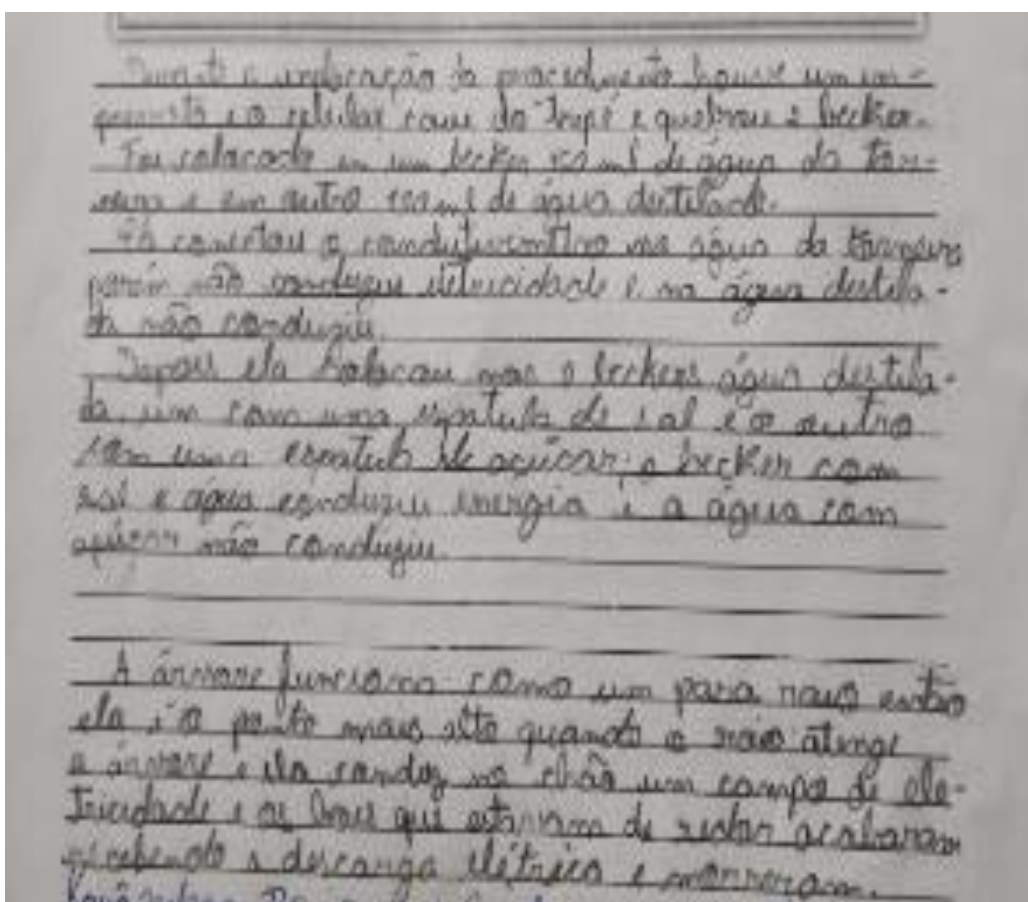 Durante a realização do procedimento houve um im-
previsto e o celular caiu do tripé e quebrou 2 becker.
Foi colocado em um becker 150 ml de água da tor-
neira e em outro 150 ml de água destilada.
conectou o condutivimitro na água da torneira
porém não conduziu eletricidade e na água destila-
da não conduziu.
Depois ela colocou nos 2 beckers água destila-
da, um com uma espatula de sal e o outro
com uma espatula de açúcar o becker com
sal e água conduziu energia e a água com
açúcar não conduziu.
A árvore funciona como um para raio então
ela é o ponto mais alto quando o raio atinge
a árvore e ela conduz no chão um campo de ele-
tricidade e os bois que estavam de redor acabaram
recebendo a descarga elétrica e morreram.